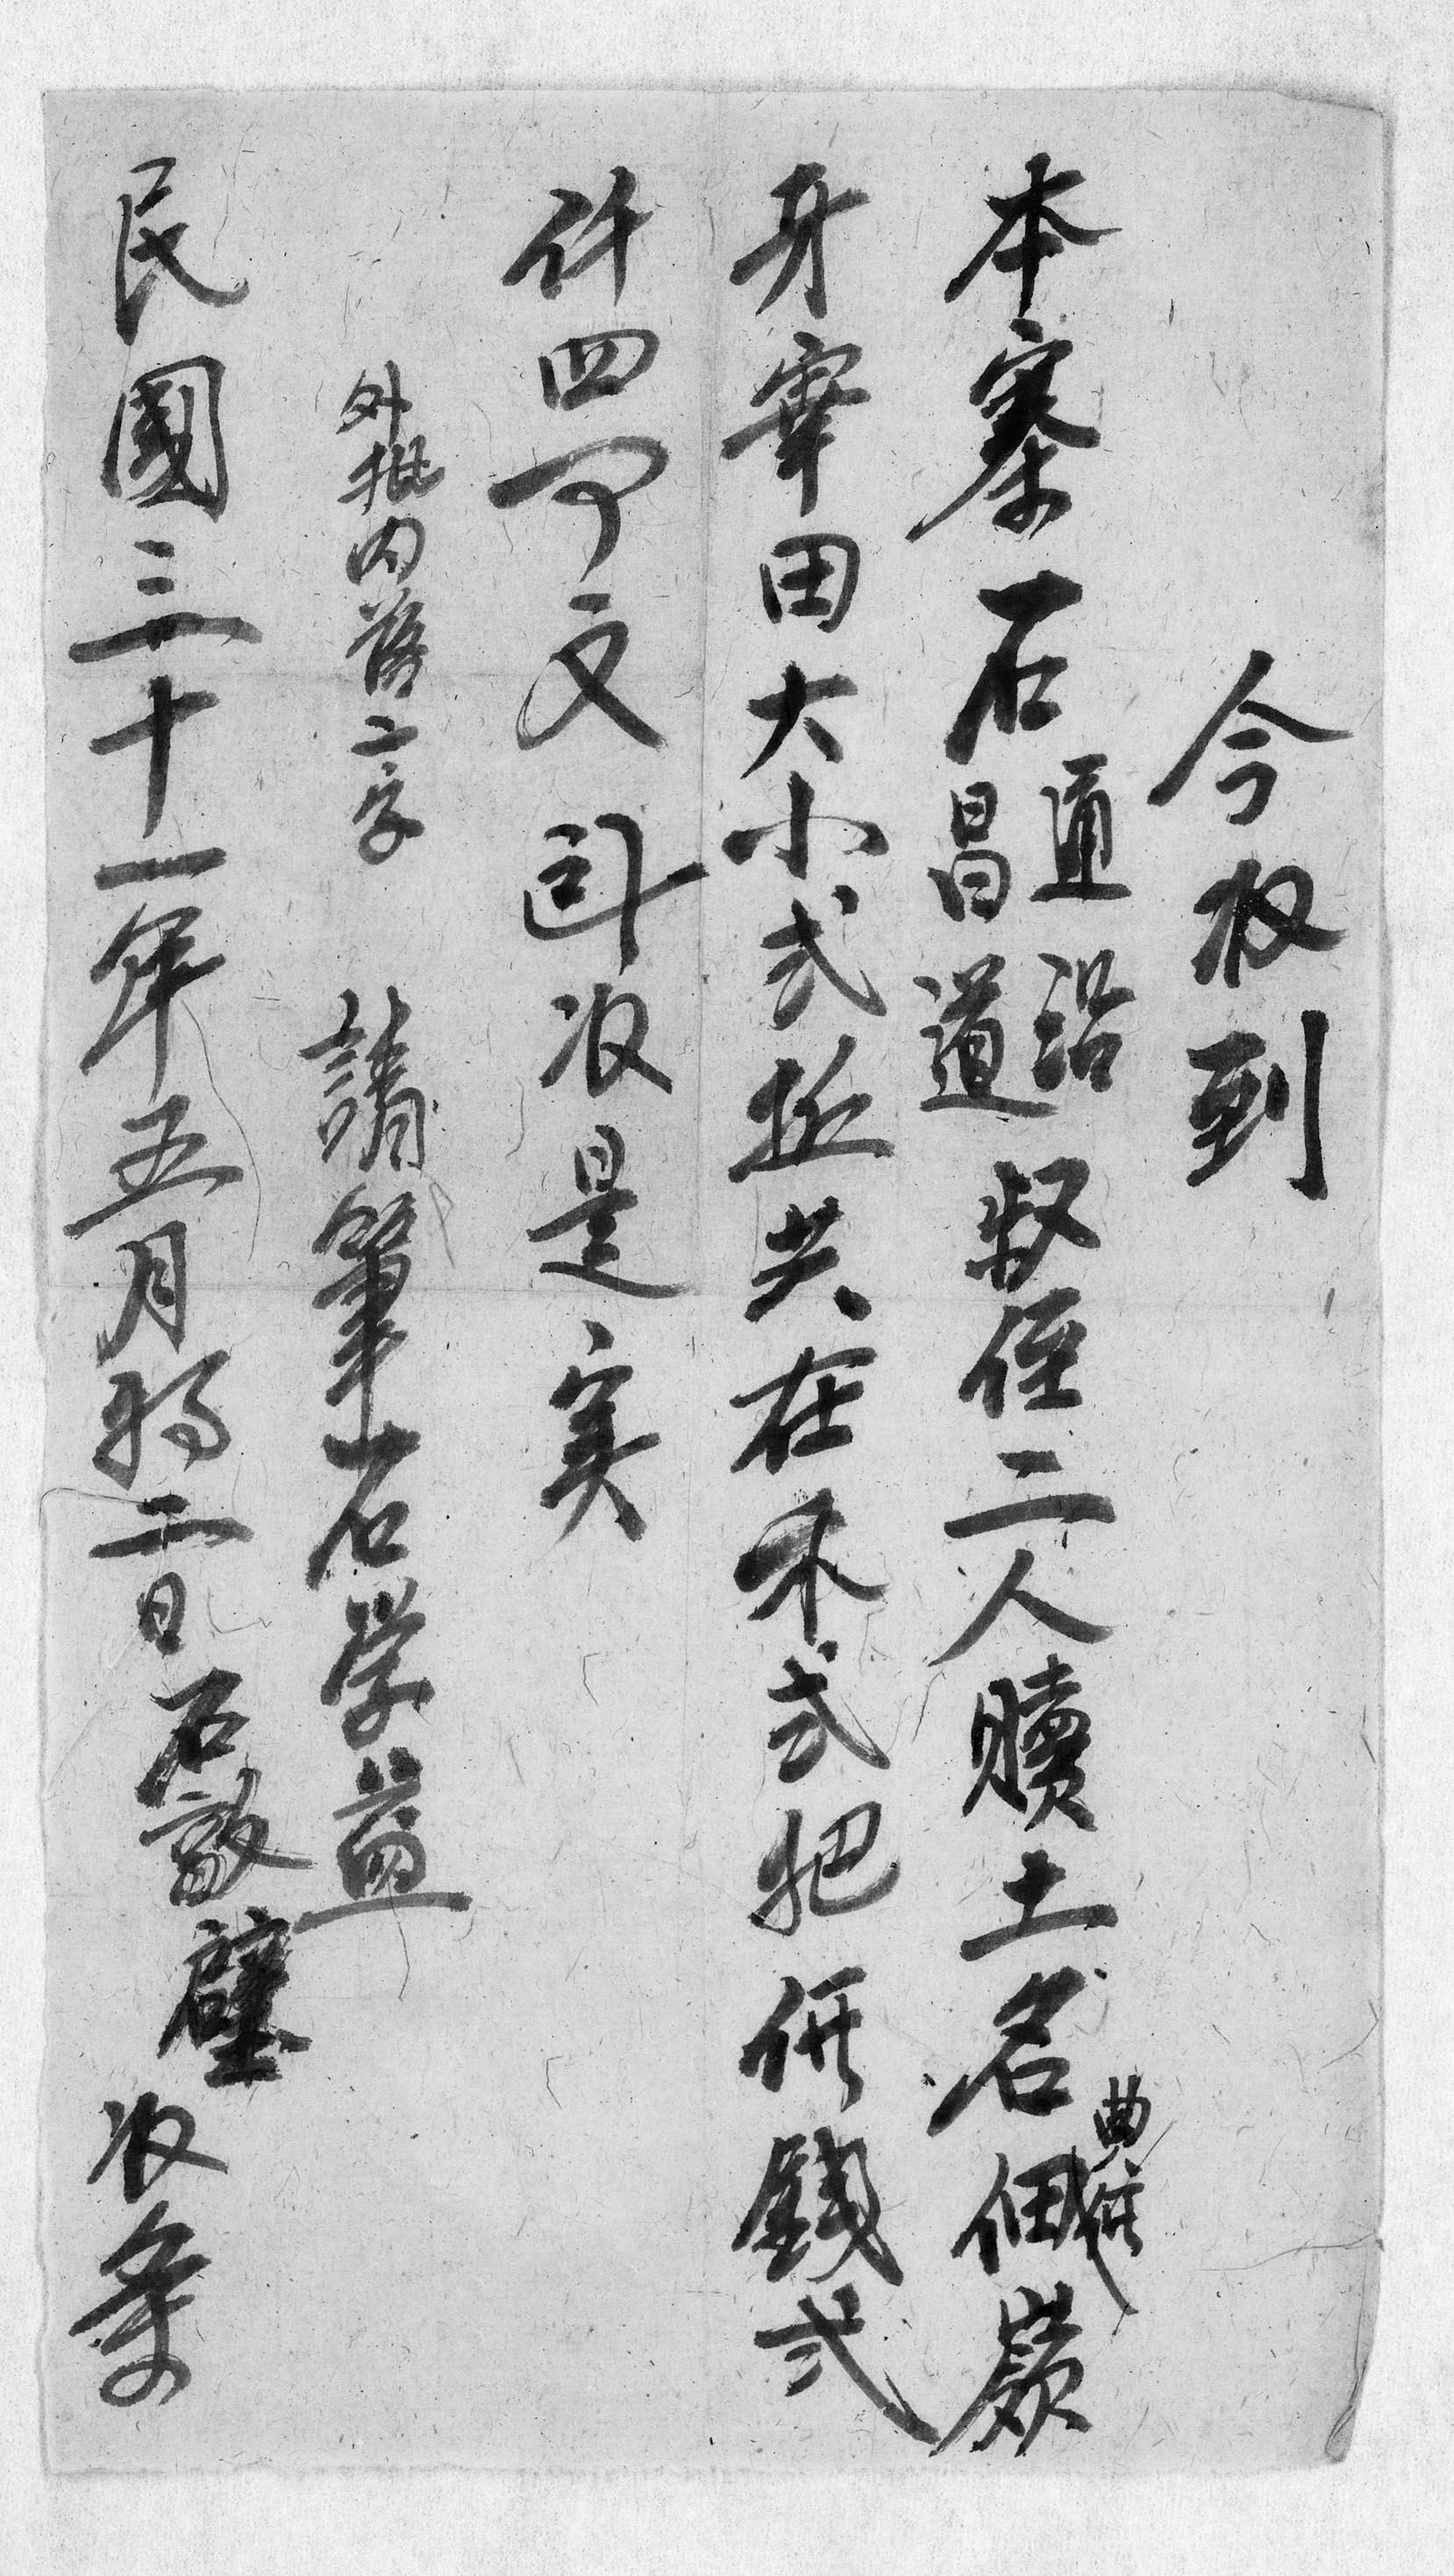 今收到
本寨石道沿昌道叔侄二人贖土名佃嶺
典價
牙田大小式坵共在禾弍把價錢弍
仟四百文收是实
外批内落二字
請筆石学益
民國三十一年五月初二日石啟璧收条